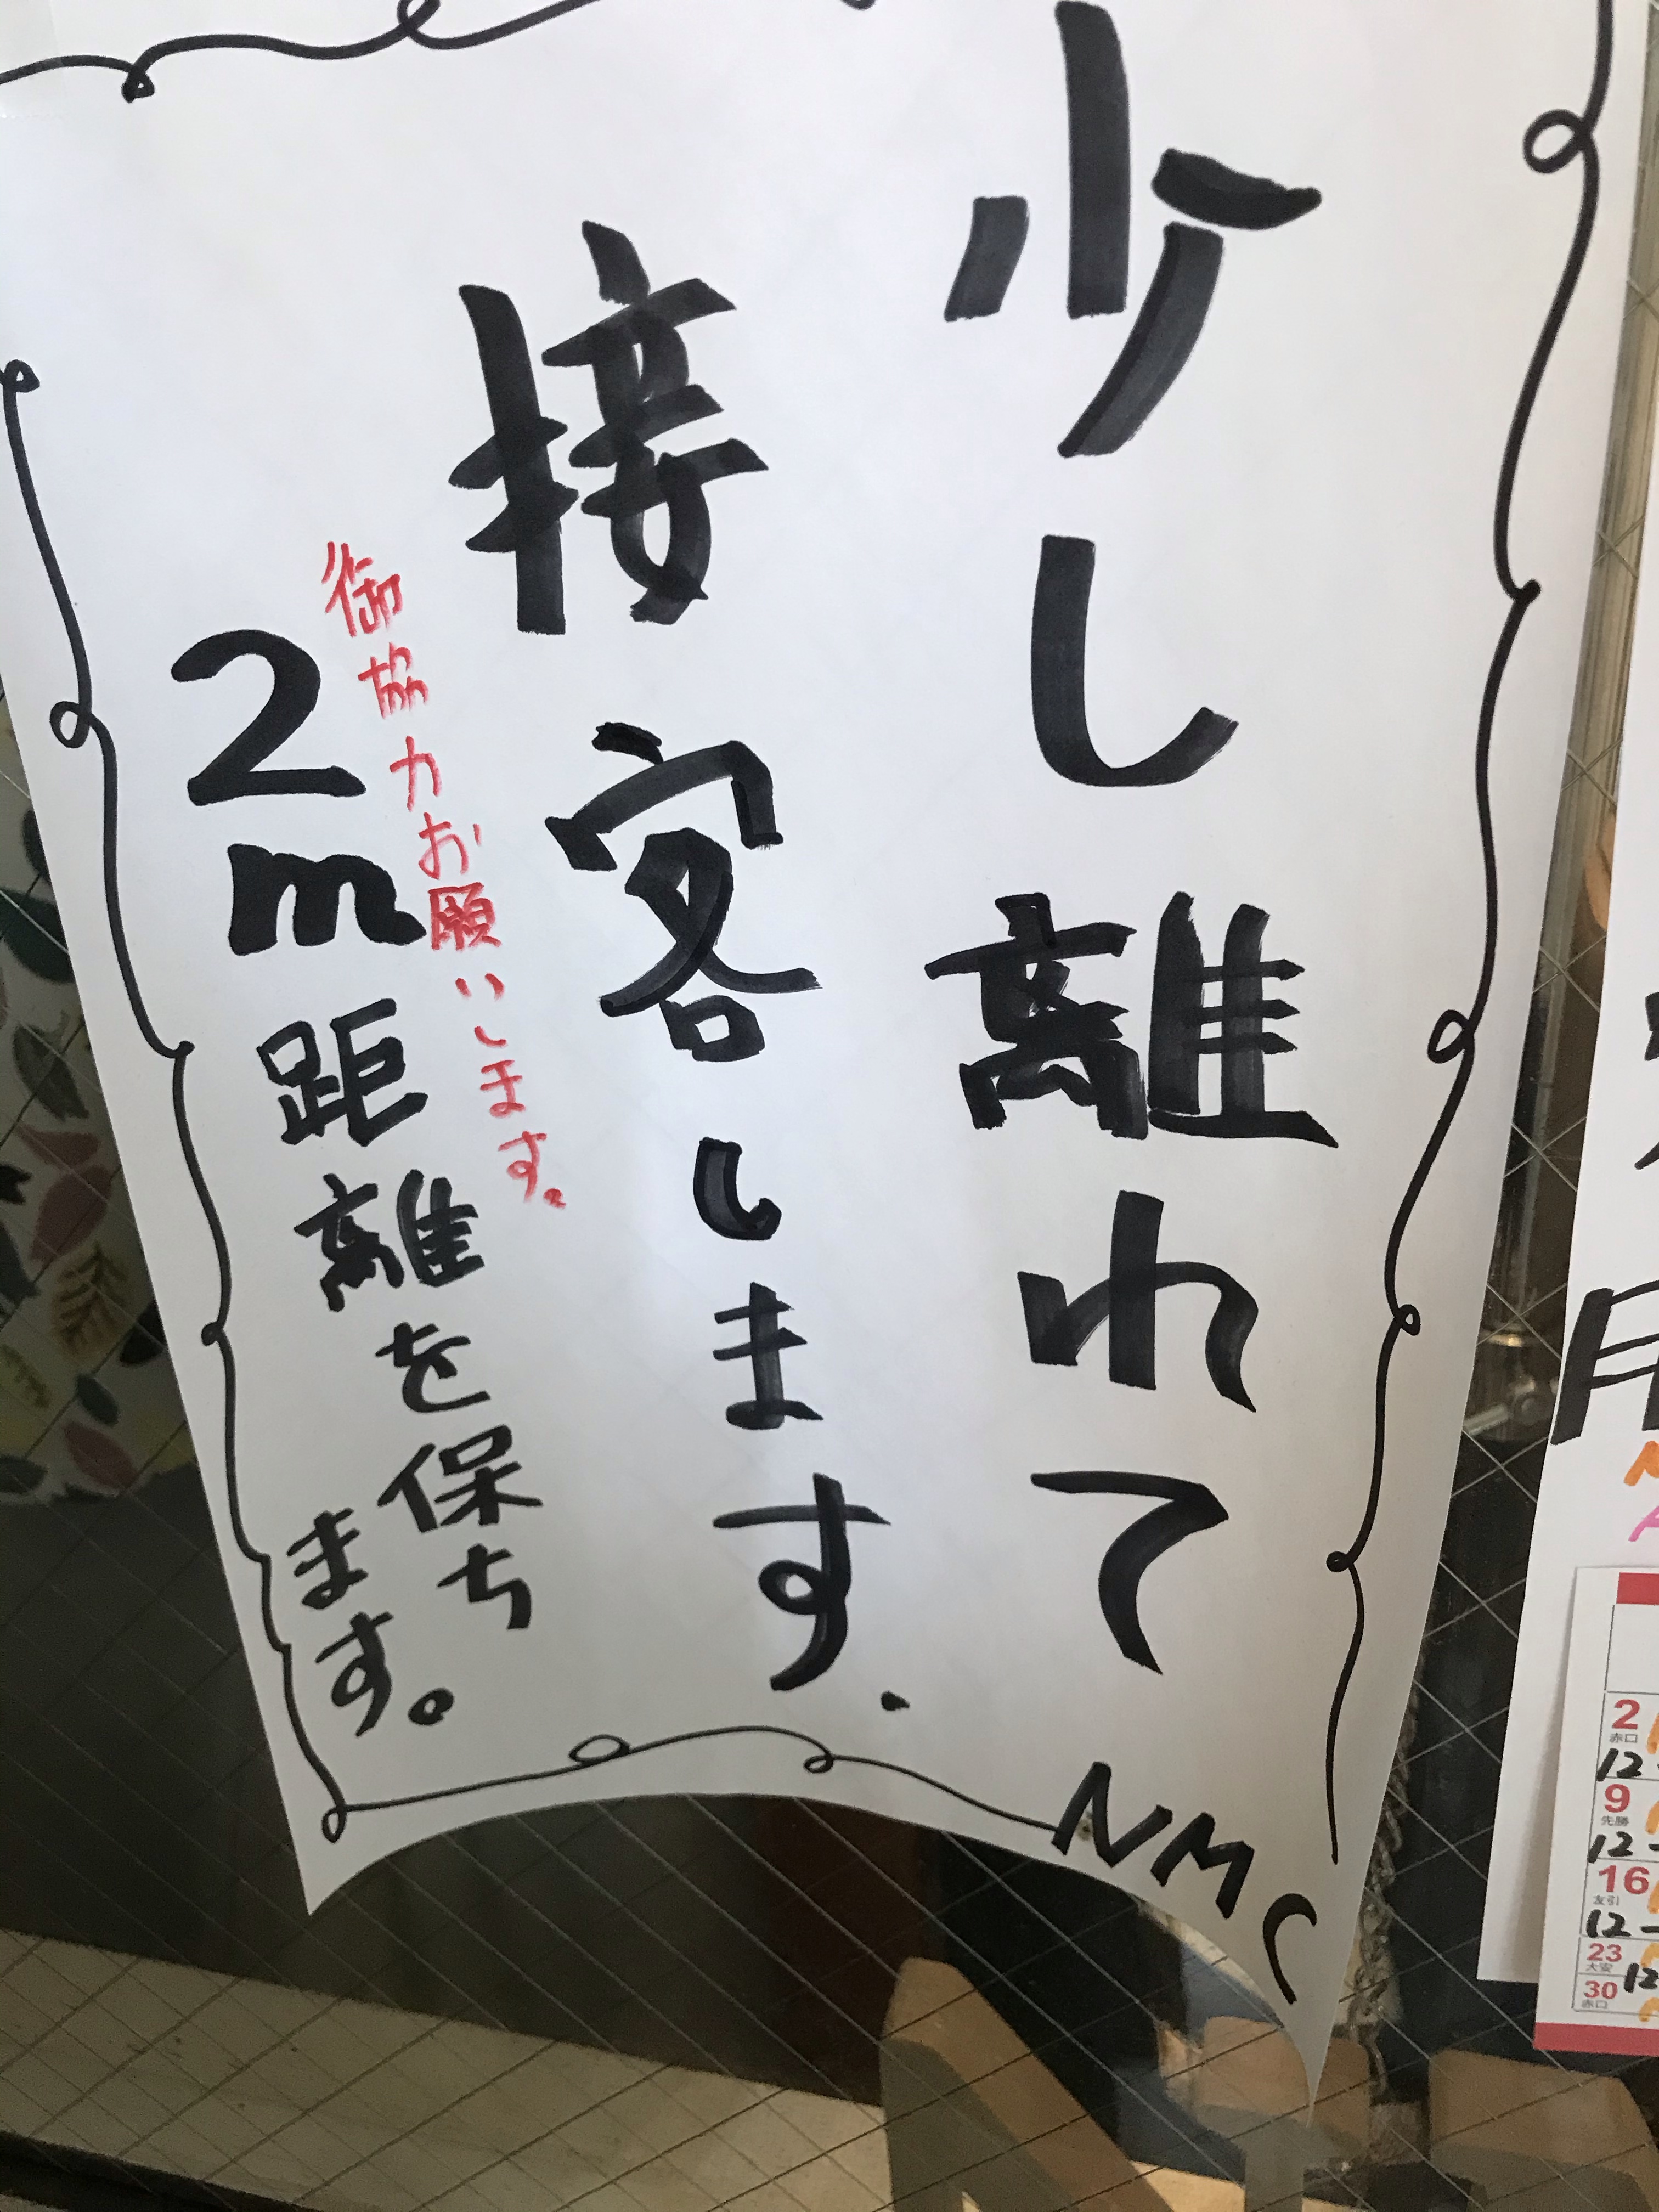 少し離れて
接客します.
御協力お願いします。
2m距離を保ち
ます。
NMC
2
赤口
12
9
先勝
12
16
友引
12
23
大安
12
30
赤口